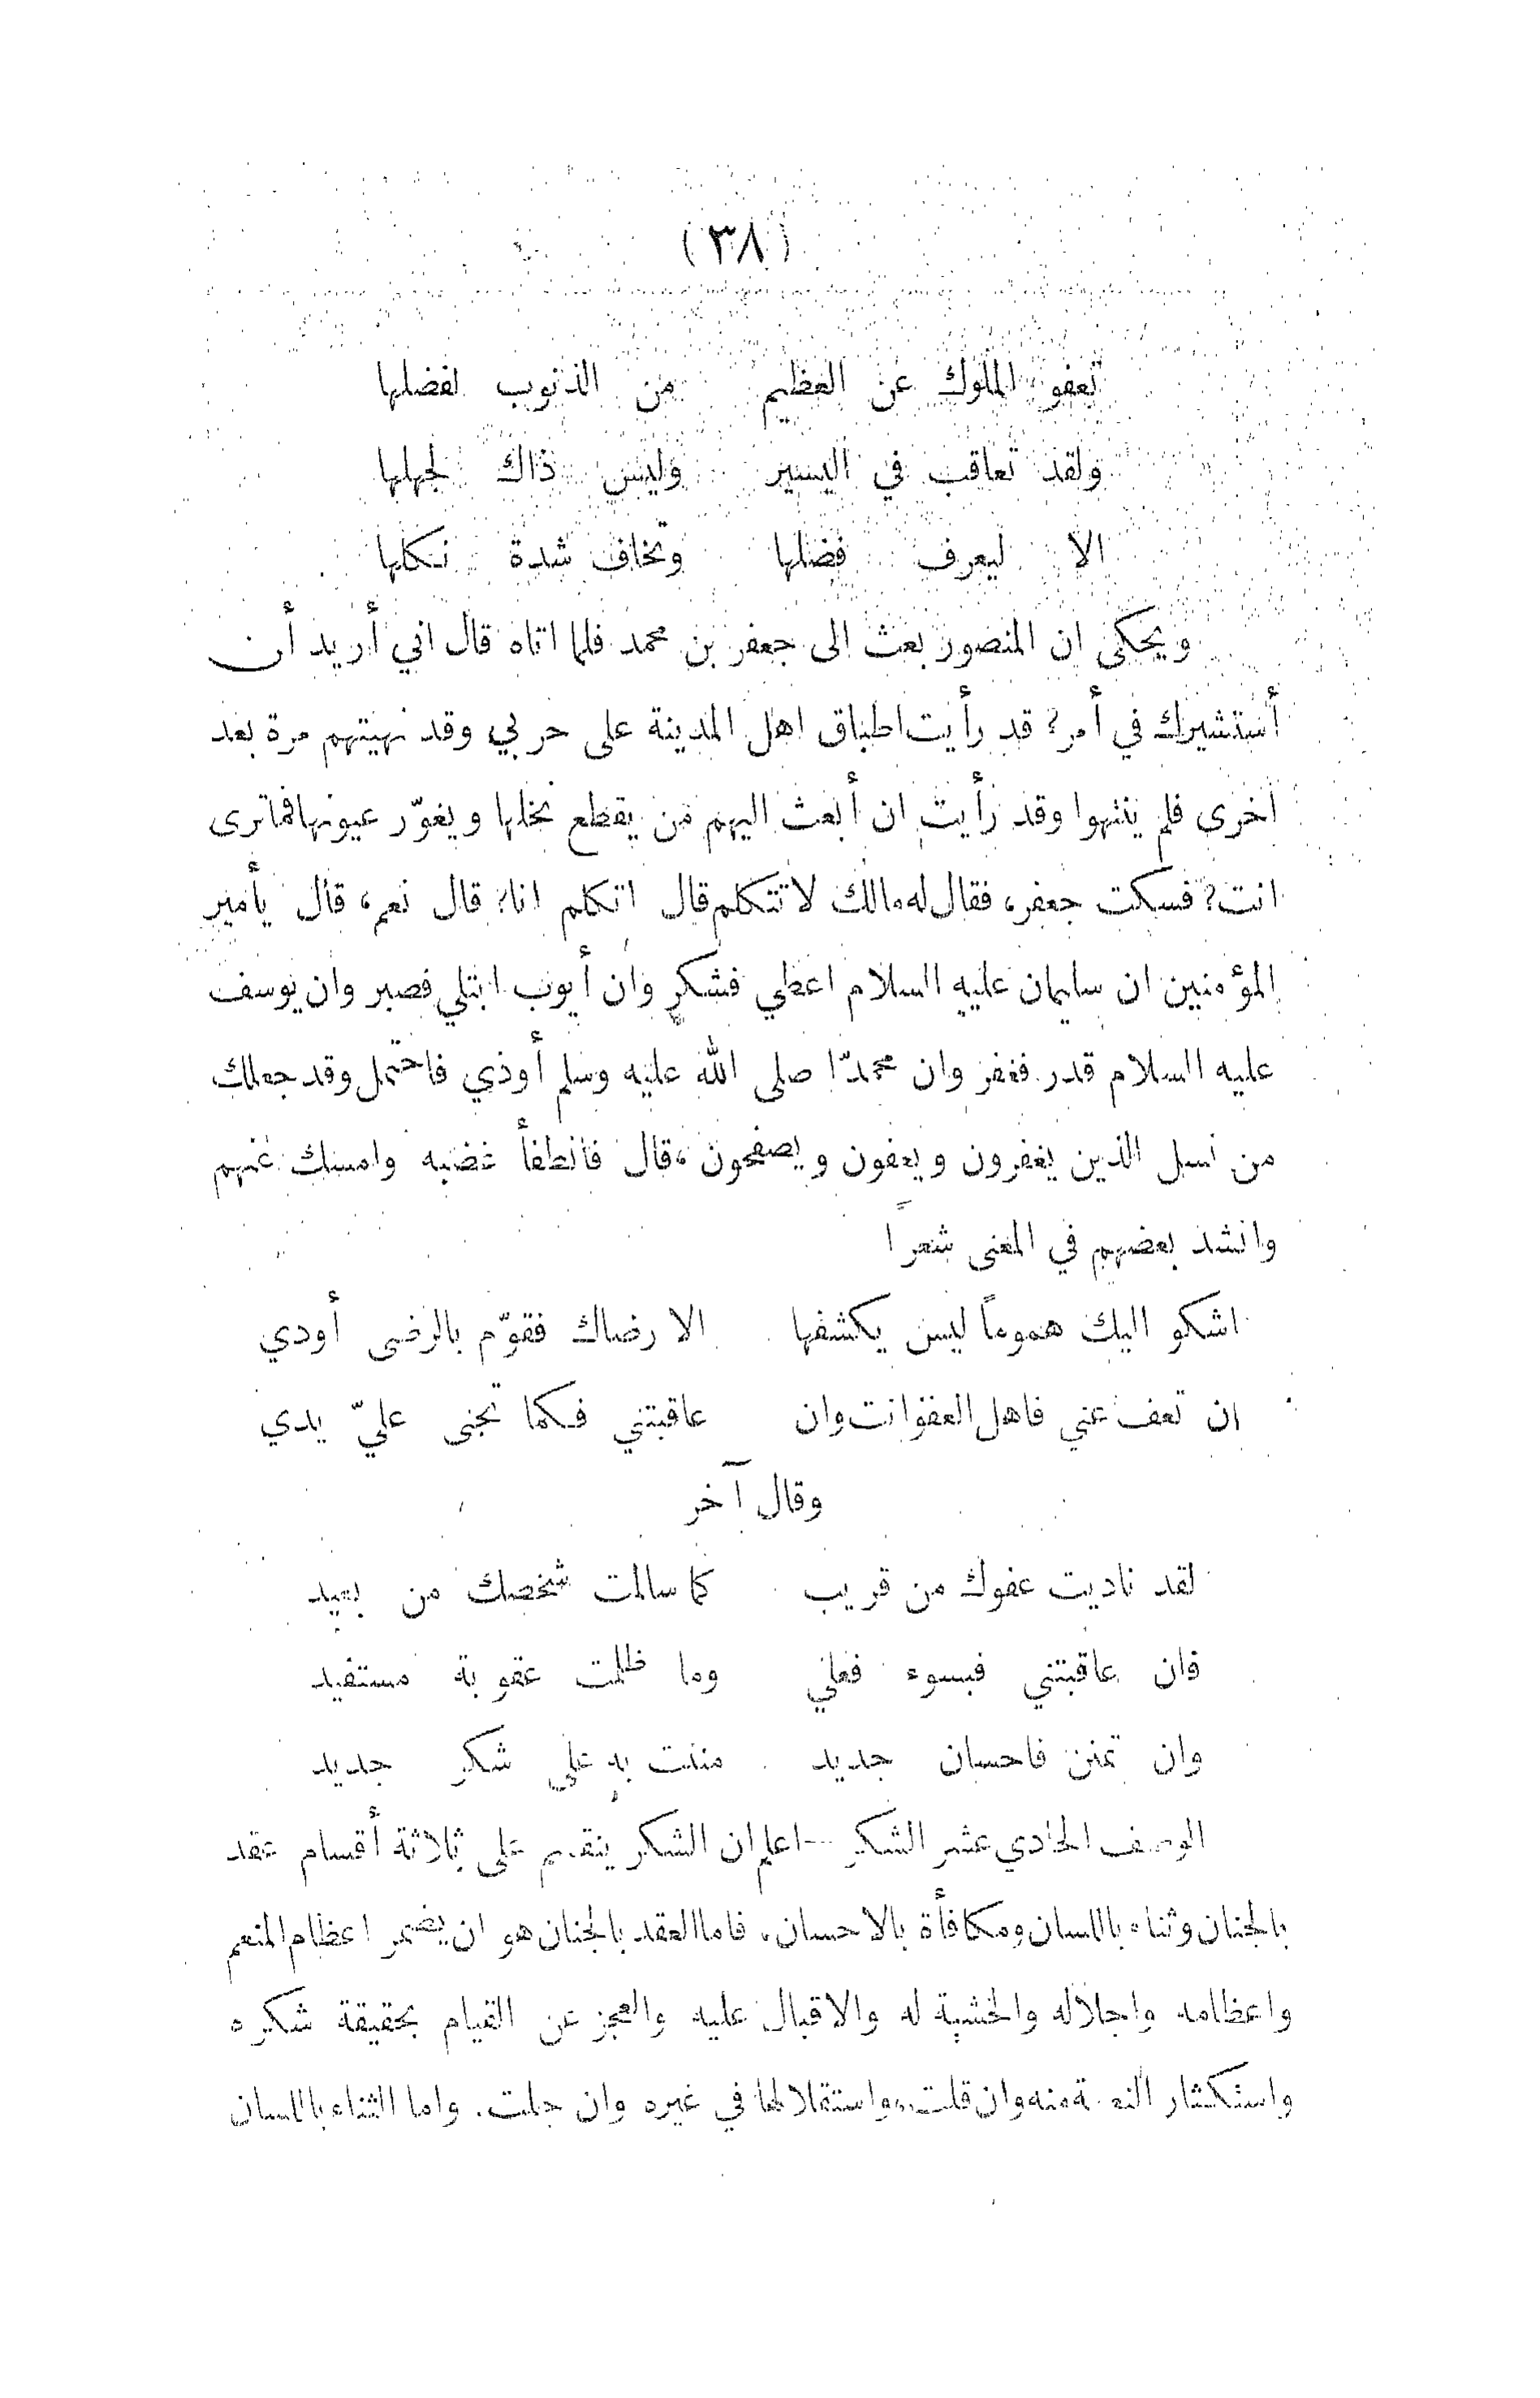 (٣٨)
تعفو الملوك عن العظيم من الذنوب لفضلها
ولقد تعاقب في اليسير وليس ذاك لجهلها
الا ليعرف فضلها وتخاف شدة نكلها
ويحكى ان المنصور بعث الى جعفر بن محمد فلما اتاه قال اني أريد أن
أستشيرك في أمر؟ قد رأيت اطباق اهل المدينة على حربي وقد نهيتهم مرة بعد
اخرى فلم ينتهوا وقد رأيت ان أبعث اليهم من يقطع نخلها ويغوّر عيونها فما ترى
انت؟ فسكت جعفر، فقال له مالك لا تتكلم قال اتكلم انا؟ قال نعم، قال يأمير
المؤمنين ان سليمان عليه السلام اعطي فشكر وان أيوب ابتلي فصبر وان يوسف
عليه السلام قدر فغفر وان محمدّا صلى الله عليه وسلم أوذي فاحتمل وقد جعلك
من نسل الذين يغفرون ويعفون ويصفحون، قال فانطفأ غضبه وامسك عنهم
وانشد بعضهم في المعنى شعراً
اشكو اليك هموماً ليس يكشفها الا رضاك فقوّم بالرضى أودي
ان تعف عني فاهل العفو انت وان عاقبتني فكما تجنى عليّ يدي
وقال آخر
لقد ناديت عفوك من قريب كما سالمت شخصك من بعيد
فان عاقبتني فبسوء فعلي وما ظلمت عقوبة مستفيد
وان تمنن فاحسان جديد مننت به على شكر جديد
الوصف الحادي عشر الشكر — اعلم ان الشكر ينقسم على ثلاثة أقسام عقد
بالجنان وثناء باللسان ومكافأة بالاحسان، فاما العقد بالجنان هو ان يضمر اعظام المنعم
واعظامه واجلاله والخشية له والاقبال عليه والعجز عن القيام بحقيقة شكره
واستكثار النعمة منه وان قلت، واستقلالها في غيره وان جلت. واما الثناء باللسان